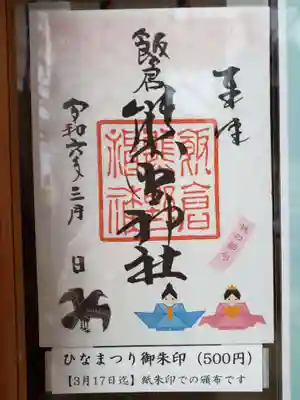 奉拝
飯倉
熊野神社
令和六年三月 日
飯倉
熊野
神社
ひなまつり御朱印(500円)
【3月17日迄】紙朱印での頒布です